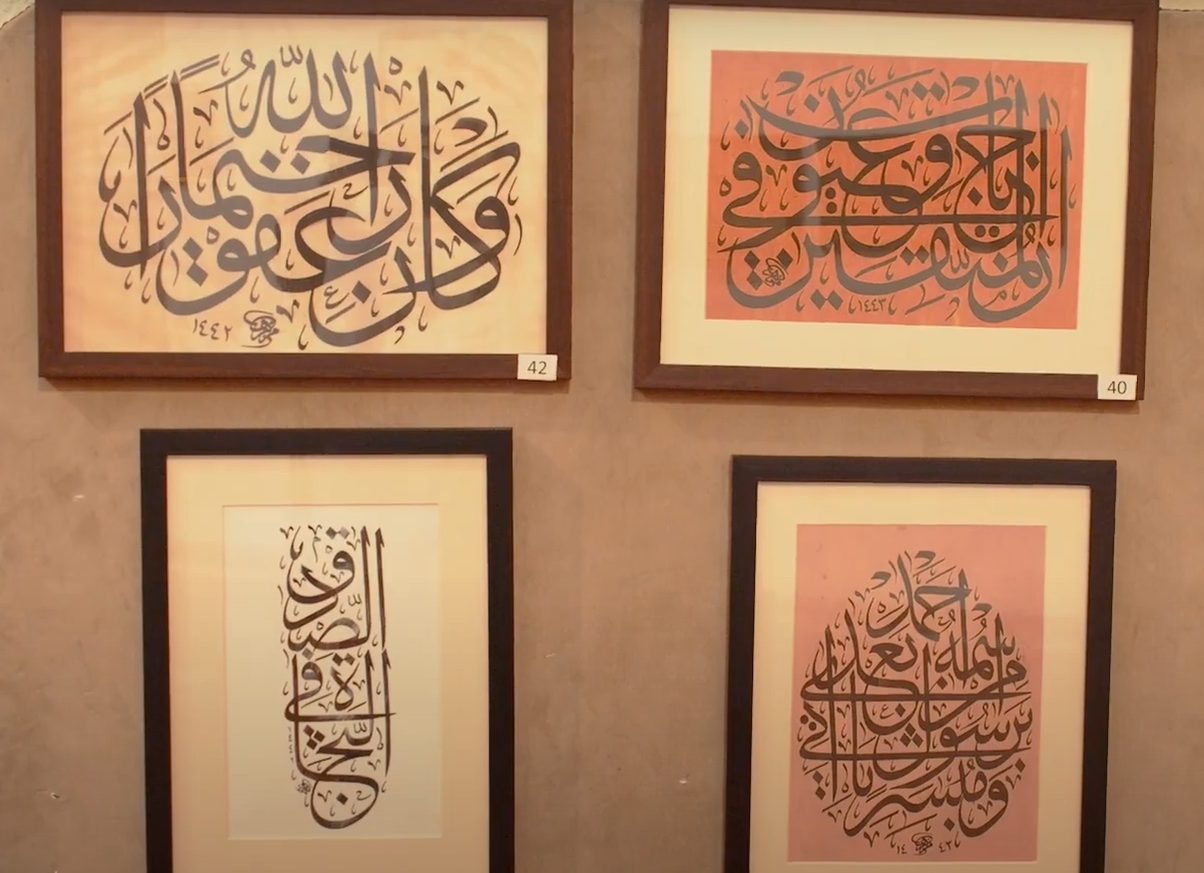 وكان الله غفورا رحيما
١٤٤٢
42
إن المتقين في جنات وعيون
١٤٤٣
40
النجاة في الصدق
ومبشرا برسول يأتي من بعدي اسمه أحمد
١٤٤٢